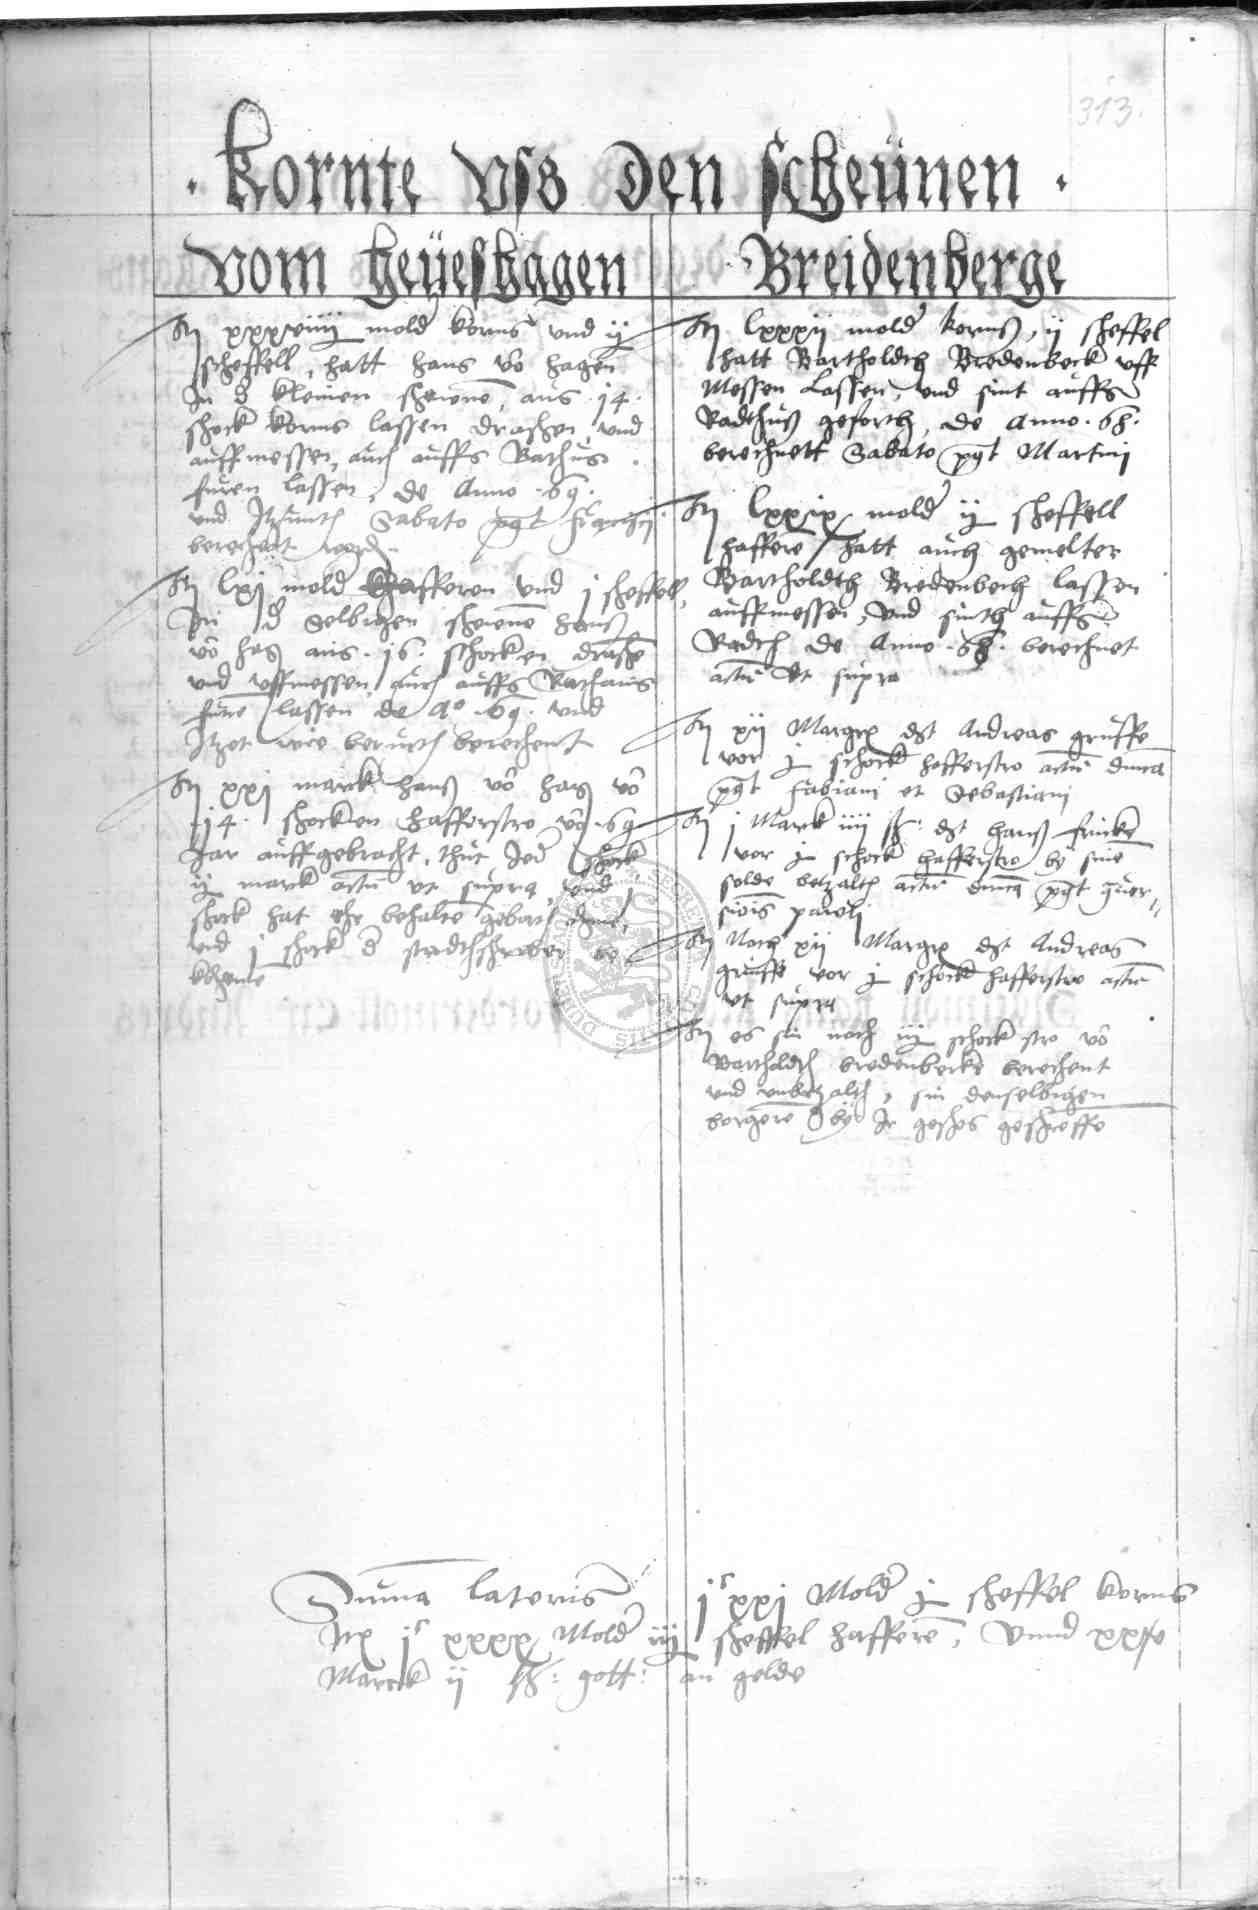 313.
· Kornte vss den scheünen ·
vom heÿeshagen
Jtem xxxviiij mold korns und ij
scheffell, hatt hans vo hagen
Jn d kleinen schewne, aus .14.
schock korns lassen draschen, und
auffmessen, auch auffs Rathus
furen lassen, de Anno .69.
und Jtzunth Sabato post francisci
berechent
Jtem lxj mold hafferen und j scheffell,
Jn d Selbigen schewne hans
vo hag aus .16. schocken drasche
und uffmessen, auch auffs Rathaus
fure lassen de Ao .69. und
Jtzet wie berurth berechent
Jtem xxj marck hans vo hag vo
.14. schocken hafferstro vo .69
Jar auffgebracht, thut Jed schock
ij marck actu ut supra, und j
schock hat ehe behalte
und j schock d stadtschreiber be
kheme
Breidenberge
Jtem lxxxij mold korns, ij scheffel
hatt Bartholdth Bredenbeck uff
Messen Lassen, und sint auffs
Radthus geforth, de Anno .68.
berechnett Sabato post Martinj
Jtem lxxix mold ij scheffell
haffere hatt auch gemelter
Bartholdth Bredenbech lassen
auffmessen, und sinth auffs
Radth de Anno .68. berechnet
actu ut supra
Jtem xij Margk dt Andreas gruffe
vor j schock hafferstro actu dnica
post fabiani et Sebastiani
Jtem j Marck iiij ß: dt hans fricke
vor j schock hafferstro by sine
solde betzalth actu dnica post
pauli
Jtem Noch xij Margk dt Andreas
gruffe vor j schock hafferstro actu
ut supra
Jtem es sin noch iij schock stro vo
Bartholdth bredenbecke berechent
und unbetzalth, sin denselbigen
borgere by Jr geschos geschreffe
Suma lateris jc xxj Mold j scheffel korns
Jtem jc xxxx Mold iij scheffel haffere, Unnd
Marck ij ß: gott: an gelde